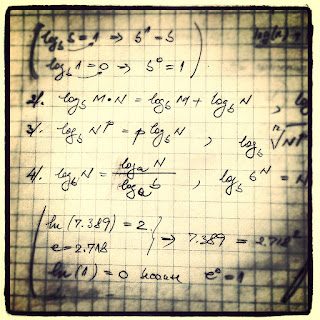 log_b b = 1 => b^1 = b
log_b 1 = 0 => b^0 = 1
2/. log_b M·N = log_b M + log_b N , log
3/. log_b N^p = p log_b N , log_b ⁿ√N^p
4/. log_b N = log_a N / log_a b , log_b b^N = N
ln (7.389) = 2
e = 2.718 => 7.389 = 2.718²
ln (1) = 0 e^0 = 1